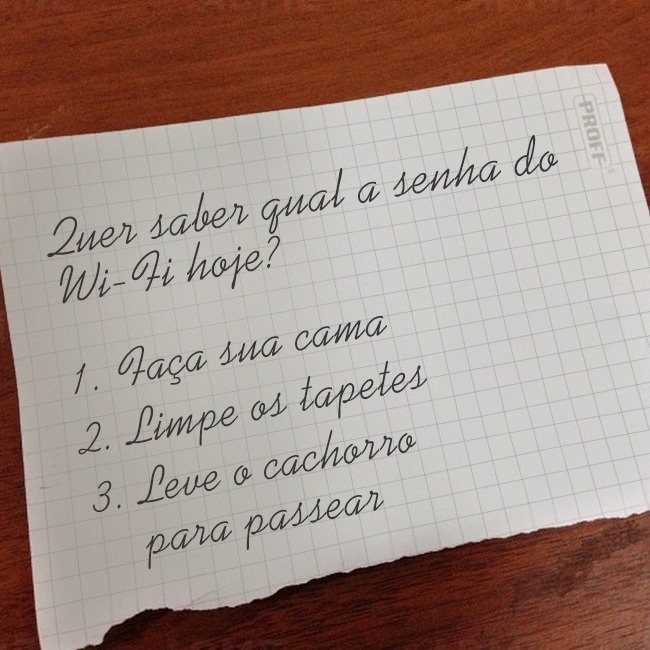 PROFF
Quer saber qual a senha do
Wi-Fi hoje?
1. Faça sua cama
2. Limpe os tapetes
3. Leve o cachorro
para passear